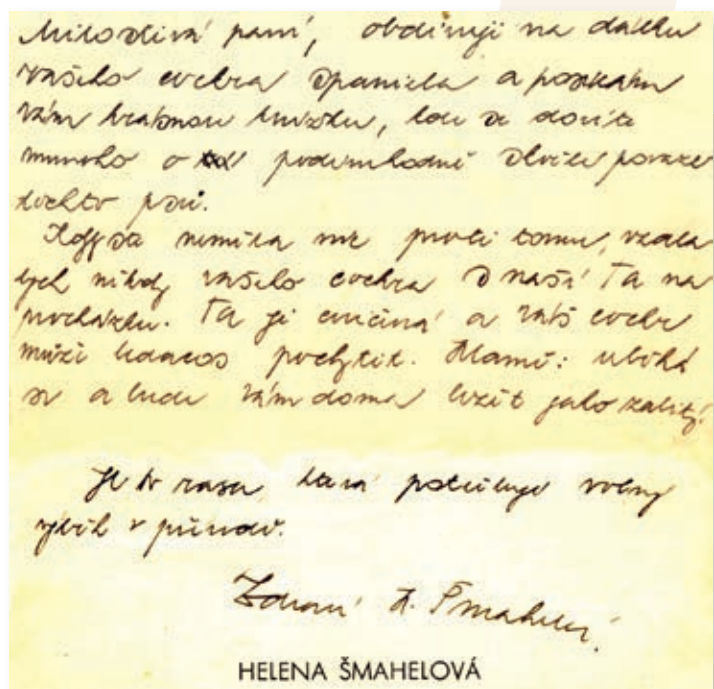 Milostivá paní, obdivuji na dálku
vašeho cockra spaniela a posílám
vám krásnou knížku, kde se dovíte
mnoho o podivuhodné skvělé povaze
těchto psů.
Kdybyste neměla nic proti tomu, vzala
bych někdy vašeho cockra s naší Ťa na
procházku. Ťa je cvičená a váš cockr
může ledacos pochytit. Hlavně: uběhá
se a bude vám doma ležet jako zabitý.
Je to rasa, která potřebuje volný
výběh v přírodě.
Zdraví H. Šmahelová.
HELENA ŠMAHELOVÁ